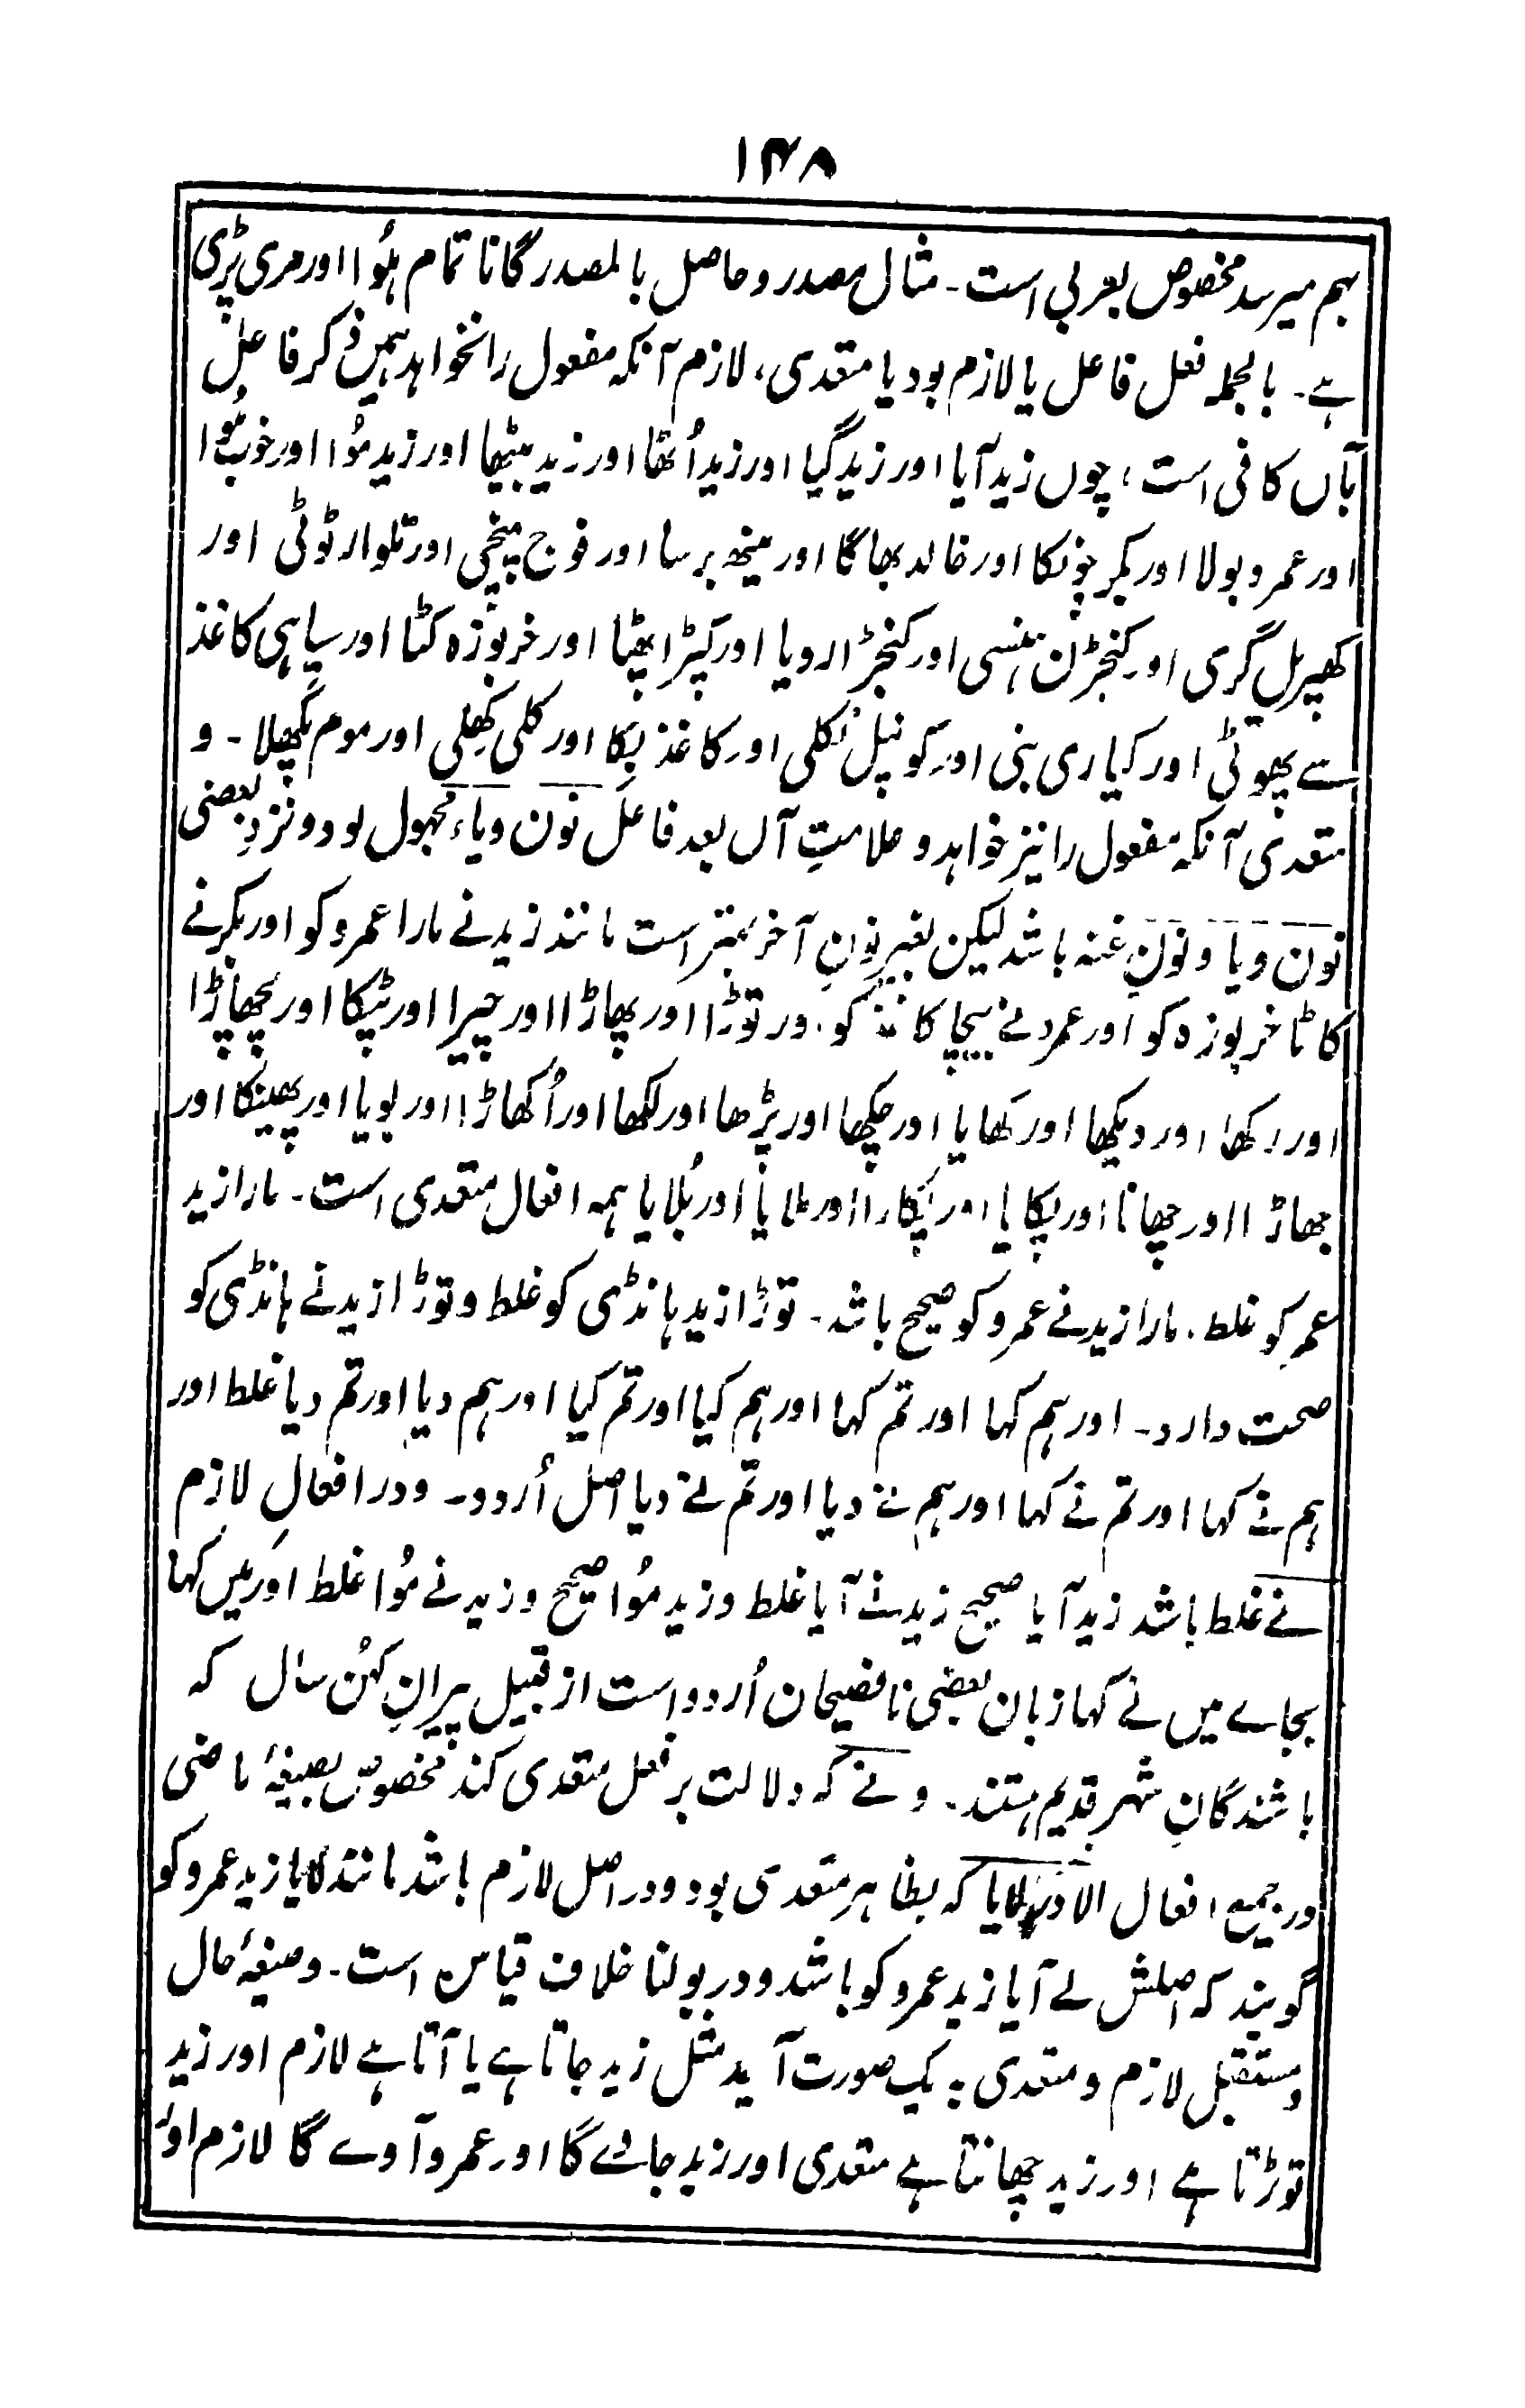 ۱۴۸
بہم میرسد مخصوص بعربی است۔ مثال مصدر و حاصل بالمصدر گانا تمام ہُوا اور مری پڑی
ہے۔ بالجملہ فعل فاعل یا لازم بود یا متعدی، لازم آنکہ مفعول را نخواہد ہمیں ذکر فاعل
بآں کافی است، چوں زید آیا اور زید گیا اور زید اُٹھا اور زید بیٹھا اور زید مُوا اور خوب ہُوا
اور عمرو بولا اور بکر چونکا اور خالد بھاگا اور مینھ برسا اور فوج پہنچی اور تلوار ٹوٹی اور
کھپریل گری اور کنجڑن ہنسی اور کنجڑا رویا اور کپڑا پھٹا اور خربوزہ کٹا اور سیاہی کاغذ
سے پھوٹی اور کیاری بنی اور کونپل نکلی اور کاغذ پکا اور کلی کھِلی اور موم پگھلا۔ و
متعدی آنکہ مفعول را نیز خواہد و علامتِ آں بعد فاعل نون ویاء مجہول بود و نزدِ بعضی
نون و یا و نونِ غنہ باشد لیکن بغیر نونِ آخر بہتر است مانند زید نے مارا عمرو کو اور بکر نے
کاٹا خرپوزہ کو اور عمرو نے بیچا کاغذ کو۔ اور توڑا اور پھاڑا اور چیرا اور ٹپکا اور پچھاڑا
اور رکھا اور دیکھا اور کھایا اور چکھا اور پڑھا اور لکھا اور اُکھاڑا اور بویا اور پھینکا اور
جھاڑا اور چھانا اور پکایا اور پُکارا اور ملایا اور بُلایا ہمہ افعال متعدی است۔ مارا زید
عمرِ کو غلط۔ مارا زید نے عمرو کو صحیح باشد۔ توڑا زید ہانڈی کو غلط و توڑا زید نے ہانڈی کو
صحت دارد۔ اور ہم کہا اور تم کہا اور ہم کیا اور تم کیا اور ہم دیا اور تم دیا غلط اور
ہم نے کہا اور تم نے کہا اور ہم نے دیا اور تم نے دیا اصل اُردو۔ و در افعالِ لازم
نے غلط باشد زید آیا صحیح زید نے آیا غلط و زید مُوا صحیح و زید نے مُوا غلط اور میں کہا
بجاے میں نے کہا زبان بعضی نافصیحان اُردو است از قبیل پیرانِ کہُن سال کہ
باشندگانِ شہرِ قدیم ہستند۔ و نے کہ دلالت بر فعل متعدی کند مخصوص بصیغۂ ماضی
در جمیع افعال الا در لایا کہ بظاہر متعدی بود و در اصل لازم باشد مانند لایا زید عمرو کو
گویند کہ اصلش لے آیا زید عمرو کو باشد و در بولنا خلاف قیاس است۔ و صیغۂ حال
و مستقبل لازم و متعدی بہ یک صورت آید مثل زید جاتا ہے یا آتا ہے لازم اور زید
توڑتا ہے اور زید چھانتا ہے متعدی اور زید جاوے گا اور عمرو آوے گا لازم اور